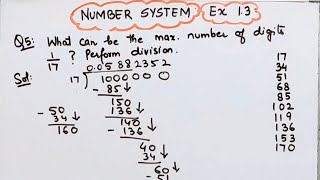 NUMBER SYSTEM Ex 1.3
Q5: What can be the max. number of digits
1/17 ? Perform division.
0.05882352
Sol: 17 ) 1000000 0
- 85 ↓
150
- 50 136 ↓
34 ↓ 140
160 - 136 ↓
40
34 ↓
60
- 51
17
34
51
68
85
102
119
136
153
170